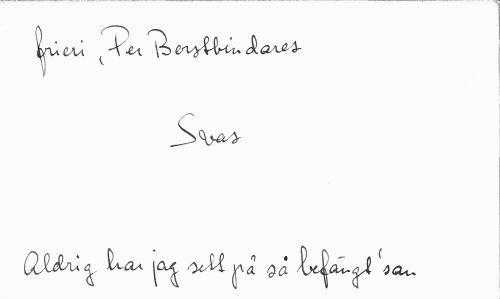 frieri, Per Borstbindares
Svas
Aldrig har jag sett på så befängt'san